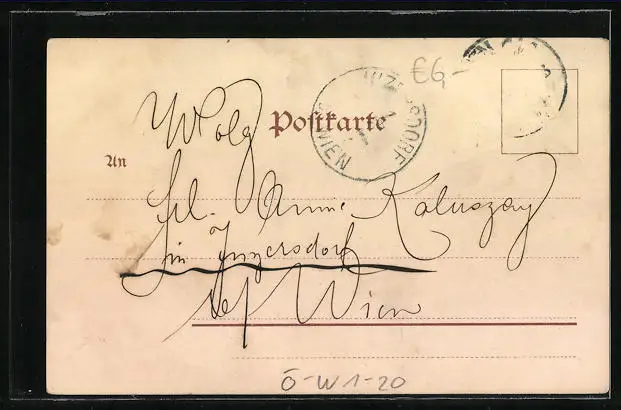 €6,-
Postkarte
An
INZERSDORF
WIEN
Frl. Anna Kaluszay
in Inzersdorf
bei Wien
Ö-W1-20